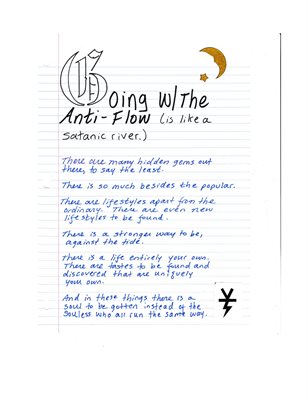 Going W/The
Anti-Flow (is like a
satanic river.)
There are many hidden gems out
there, to say the least.
There is so much besides the popular.
There are lifestyles apart from the
ordinary. There are even new
lifestyles to be found.
There is a stronger way to be,
against the tide.
There is a life entirely your own.
There are tastes to be found and
discovered that are uniquely
your own.
And in these things there is a
soul to be gotten instead of the
souless who all run the same way.